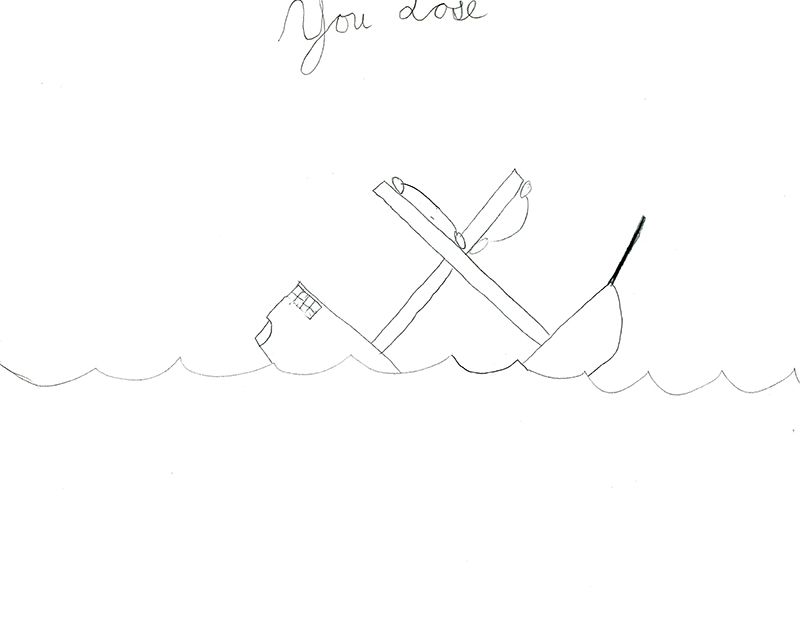 You Lose